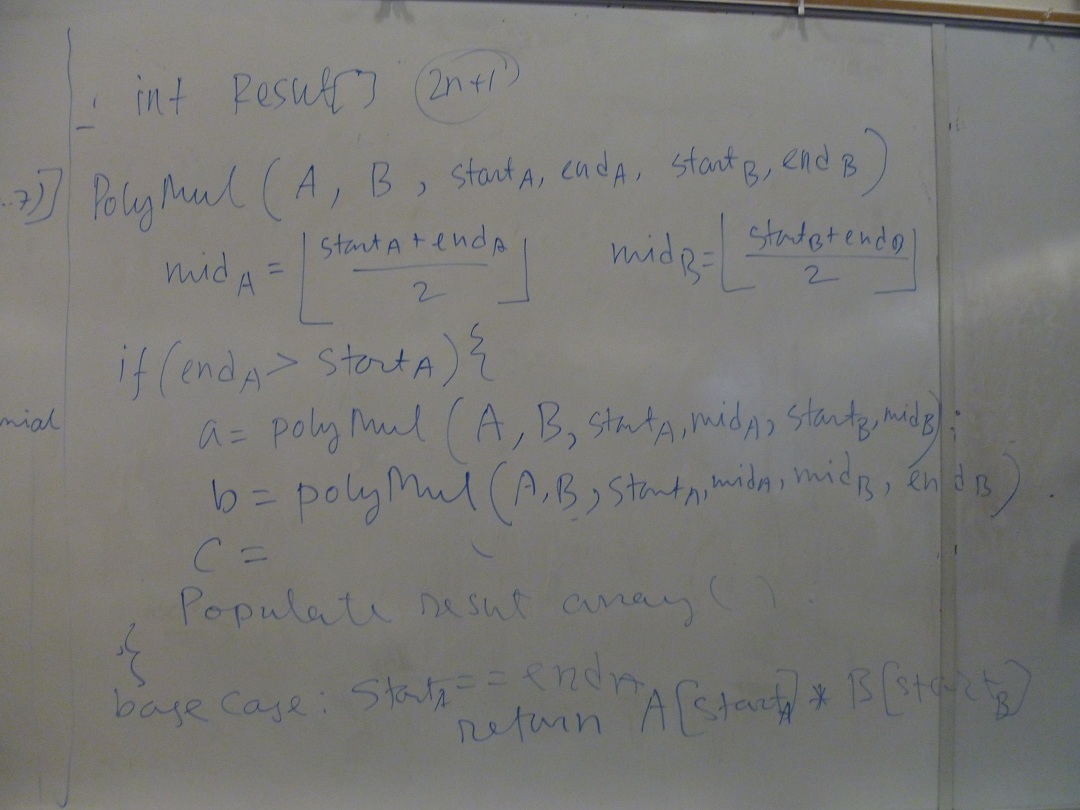 int Result[] (2n+1)
..7)]
PolyMul (A, B, startA, endA, startB, endB)
midA = ⌊startA + endA / 2⌋ midB = ⌊startB + endB / 2⌋
if (endA > startA) {
nial
a = polyMul (A, B, startA, midA, startB, midB);
b = polyMul (A, B, startA, midA, midB, endB)
C =
Populate resut array ( ).
}
base case: StartA == endA
return A[startA] * B[startB]